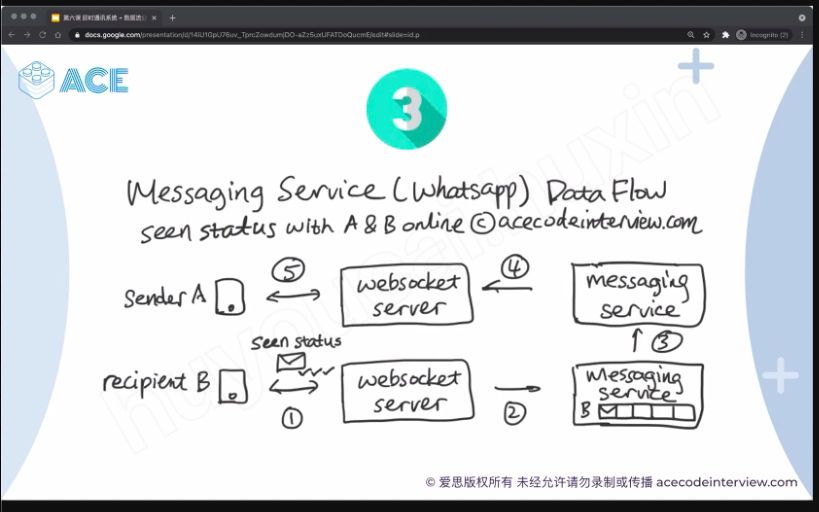 第六课 即时通讯系统 + 数据流
docs.google.com/presentation/d/14iU1GpU76uv_TprcZowdumjDO-aZz5uxUFATDoQucmE/edit#slide=id.p
Incognito (2)
ACE
3
Messaging Service (Whatsapp) Data Flow
seen status with A & B online © acecodeinterview.com
Sender A
⑤
websocket
server
④
messaging
service
③
seen status
recipient B
①
websocket
server
②
Messaging
service
B
© 爱思版权所有 未经允许请勿录制或传播 acecodeinterview.com